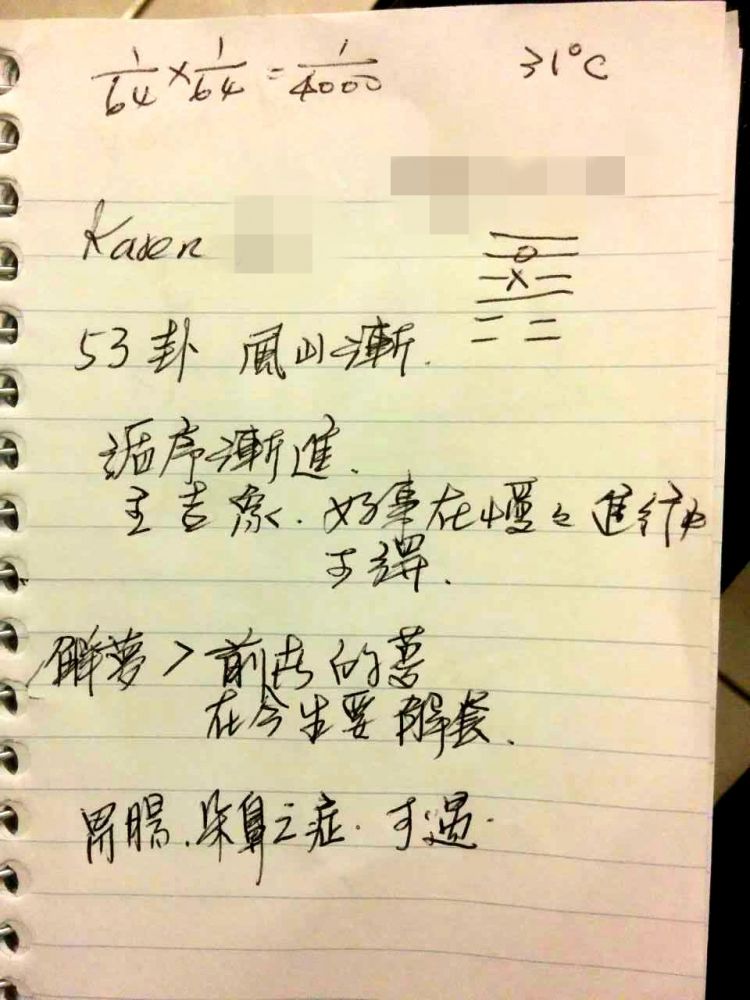 1/64 × 1/64 = 1/4000 31°C
Karen
53卦 風山漸.
循序漸進.
主吉象. 好事在慢々進行中
解夢 > 前世的
在今生要解套.
胃腸. 鼻之症. 可遇.